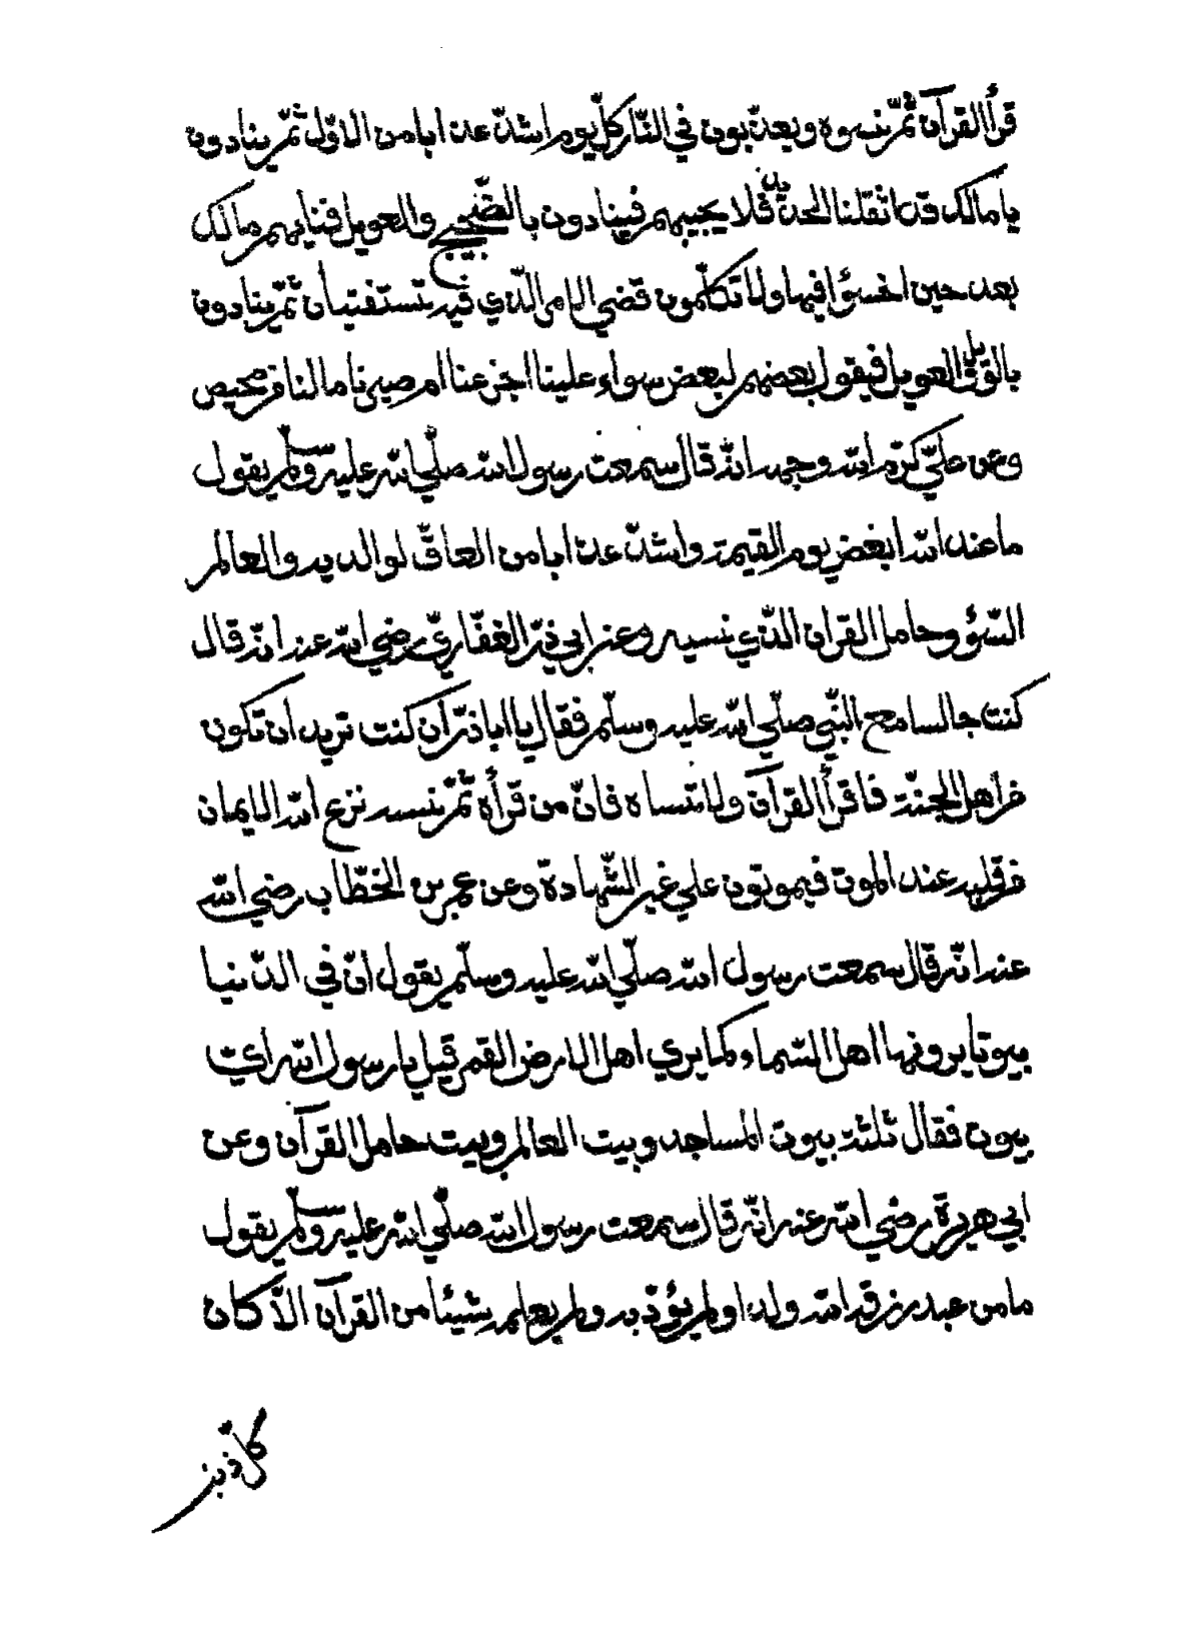 قرأ القرآن ثمّ نسوه ويعذّبون في النّار كلّ يوم اشدّ عذابا من الاوّل ثمّ ينادون
يا مالك قد اثقلنا الحديد فلا يجيبهم فينادون بالضّجيج والعويل فيناديهم مالك
بعد حين اخسؤا فيها ولا تكلّمون قضي الامر الّذي فيه تستفتيان ثمّ ينادون
بالويل والعويل فيقول بعضهم لبعض سواء علينا اجزعنا ام صبرنا ما لنا من محيص
وعن عليّ كرّم الله وجهه انّه قال سمعت رسول الله صلّي الله عليه وسلّم يقول
ما عند الله ابغض يوم القيمة واشدّ عذابا من العاقّ لوالديه والعالم
السّؤ وحامل القران الذّي نسيه وعن ابي ذرّ الغفّاريّ رضي الله عنه انّه قال
كنت جالسا مع النّبي صلّي الله عليه وسلّم فقال يا اباذرّ ان كنت تريد ان تكون
من أهل الجنّة فاقرأ القرآن ولا تنساه فانّ من قرأه ثمّ نسيه نزع الله الايمان
من قلبه عند الموت فيموتون علي غير الشّهادة وعن عمر بن الخطّاب رضي الله
عنه انّه قال سمعت رسول الله صلّي الله عليه وسلّم يقول انّ في الدّنيا
بيوتا يرونها اهل السّماء كما يري اهل الارض القمر قيل يا رسول الله اي
بيوت فقال ثلثة بيوت المساجد وبيت العالم وبيت حامل القرآن وعن
ابي هريرة رضي الله عنه انّه قال سمعت رسول الله صلّي الله عليه وسلّم يقول
ما من عبد رزقه الله ولدا ولم يؤدّبه ولم يعلمه شيئا من القرآن الاّ كان
كلّ ذنب